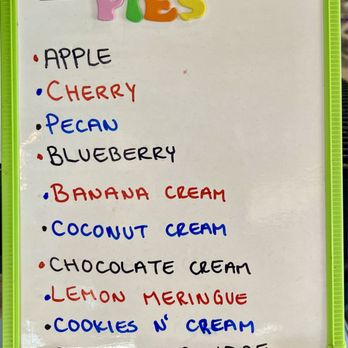 PIES
• APPLE
• CHERRY
• PECAN
• BLUEBERRY
• BANANA CREAM
• COCONUT CREAM
• CHOCOLATE CREAM
• LEMON MERINGUE
• COOKIES N' CREAM